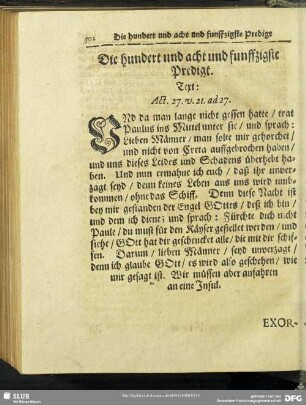 902 Die hundert und acht und funffzigste Predigt
Die hundert und acht und funffzigste
Predigt.
Text:
Act. 27. v. 21. ad 27.
UNd da man lange nicht gessen hatte / trat
Paulus ins Mittel unter sie / und sprach:
Lieben Männer / man solte mir gehorchet /
und nicht von Creta auffgebrochen haben /
und uns dieses Leides und Schadens überhebt ha-
ben. Und nun ermahne ich euch / daß ihr unver-
zagt seyd / denn keines Leben aus uns wird umb-
kommen / ohne das Schiff. Denn diese Nacht ist
bey mir gestanden der Engel GOttes / deß ich bin /
und dem ich diene; und sprach: Fürchte dich nicht
Paule / du must für den Käyser gestellet werden / und
siehe / GOtt hat dir geschencket alle / die mit dir schif-
fen. Darum / lieben Männer / seyd unverzagt /
denn ich glaube GOtt / es wird also geschehen / wie
mir gesagt ist. Wir müssen aber anfahren
an eine Insul.
EXOR-
SLUB
Wir führen Wissen.
gefördert von der
Deutschen Forschungsgemeinschaft
DFG